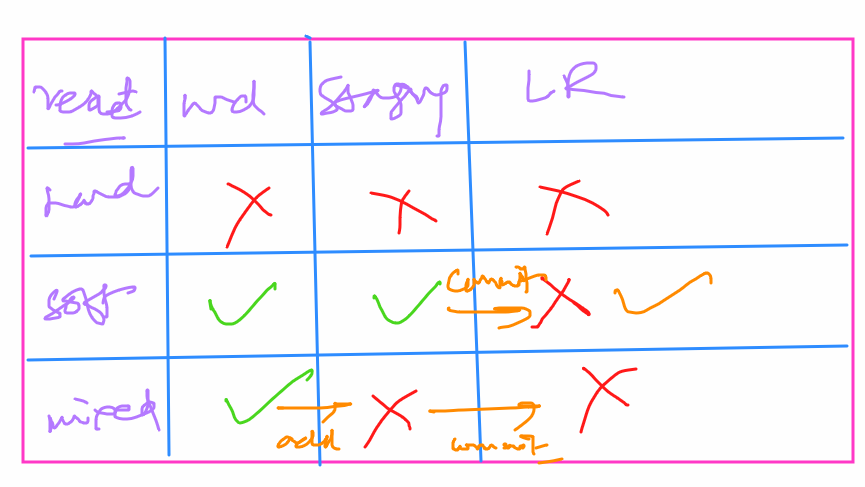 reset wd Staging LR
hard
soft commit
mixed add commit